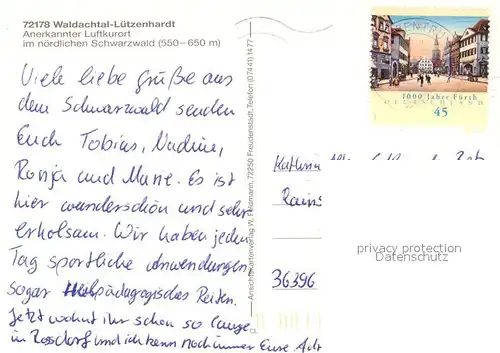 72178 Waldachtal-Lützenhardt
Anerkannter Luftkurort
im nördlichen Schwarzwald (550–650 m)
Viele liebe Grüße aus
dem Schwarzwald senden
Euch Tobias, Nadine,
Ronja und Marie. Es ist
hier wunderschön und sehr
erholsam. Wir haben jeden
Tag sportliche Anwendungen,
sogar pädagogisches Reiten.
Jetzt wohnt ihr schon so lange
in Rossdorf und ich kann noch immer Eure
Ansichtskartenverlag W. Feldmann, 72250 Freudenstadt, Telefon (07441) 1477
1000 Jahre Fürth
DEUTSCHLAND
45
36396
privacy protection
Datenschutz